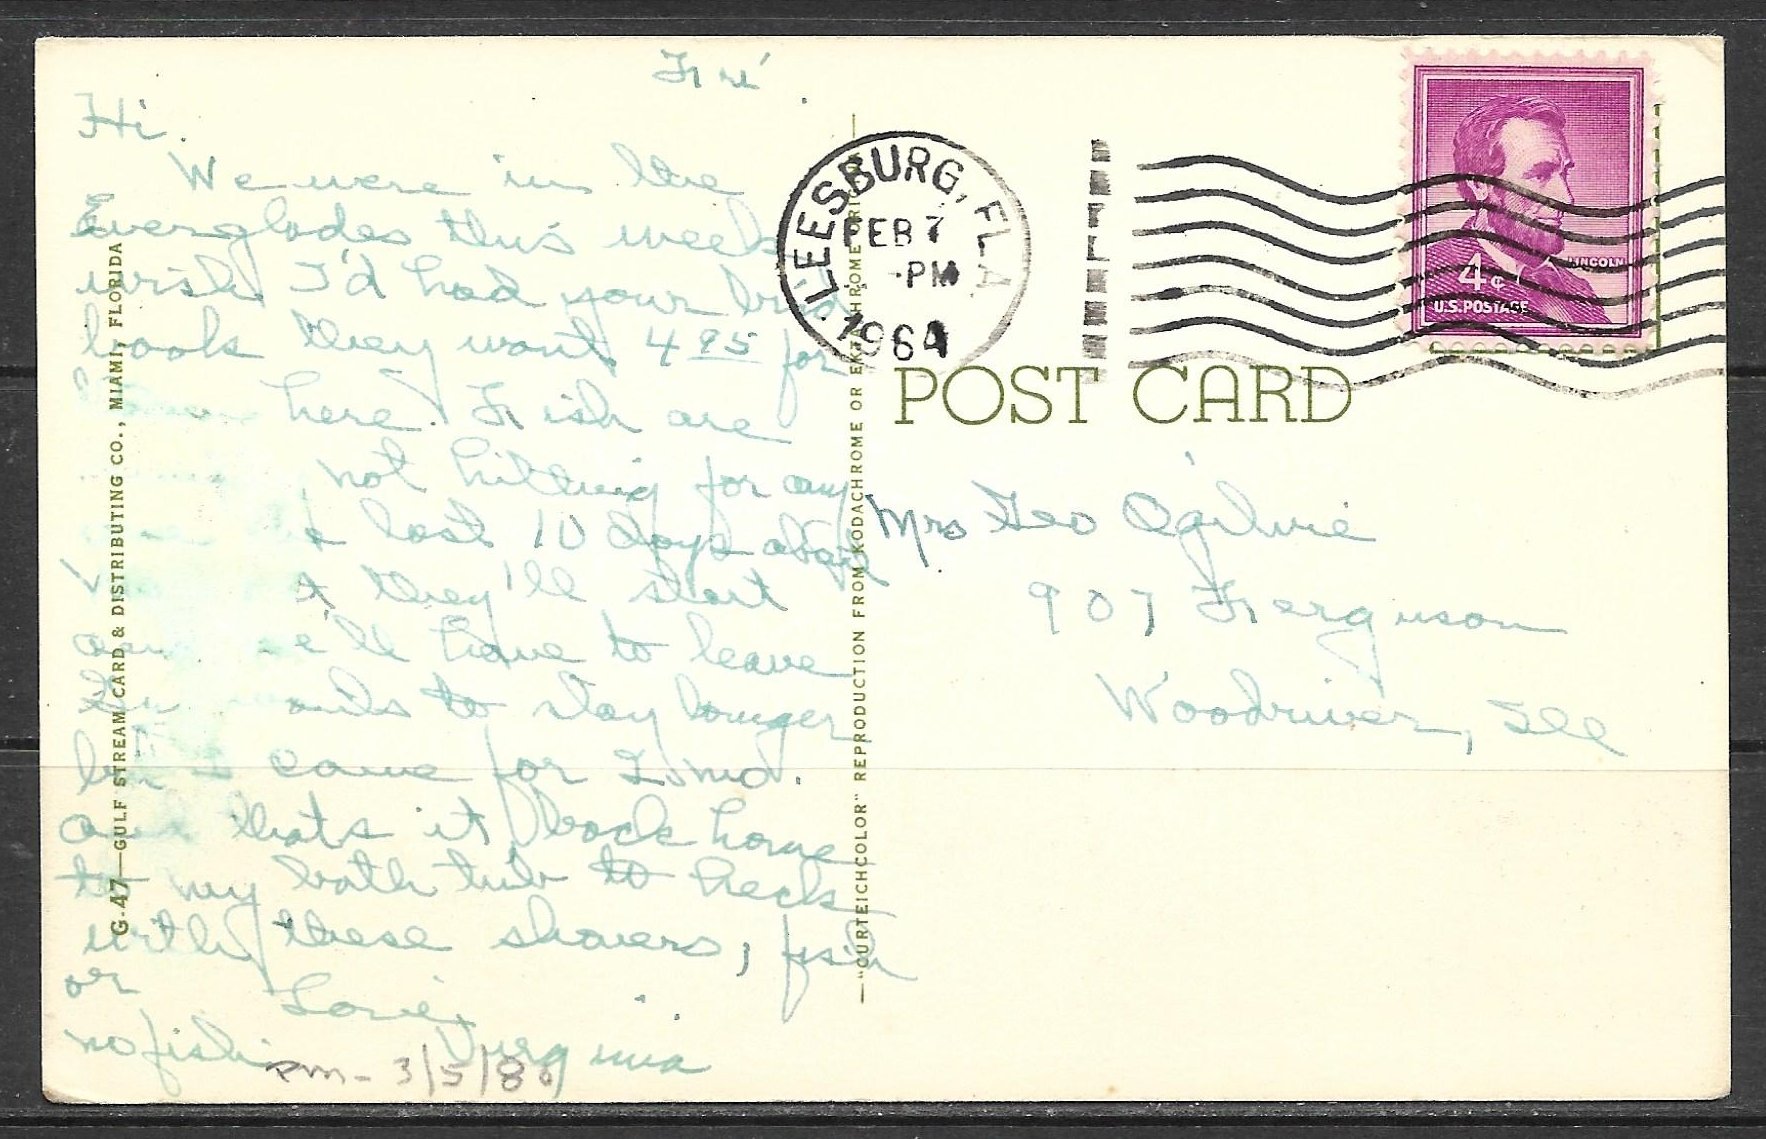 Fri
Hi.
We were in the
Everglades this week
wish I'd had your bird
book they want 4 95 for
here. Fish are
not hitting for any
last 10 days afraid
they'll start
and we'll have to leave
to stay longer
but I came for 2 mo.
and thats it back home
to my bath tub to heck
with these showers, fish
or
no fish
Love,
Virginia
PM - 3/5/80
G.47—GULF STREAM CARD & DISTRIBUTING CO., MIAMI, FLORIDA
—"CURTEICHCOLOR" REPRODUCTION FROM KODACHROME OR EKTACHROME
LEESBURG, FLA
FEB 7
-PM
1964
LINCOLN
4¢
U.S. POSTAGE
POST CARD
Mrs Geo Ogilvie
907 Ferguson
Woodriver, Ill